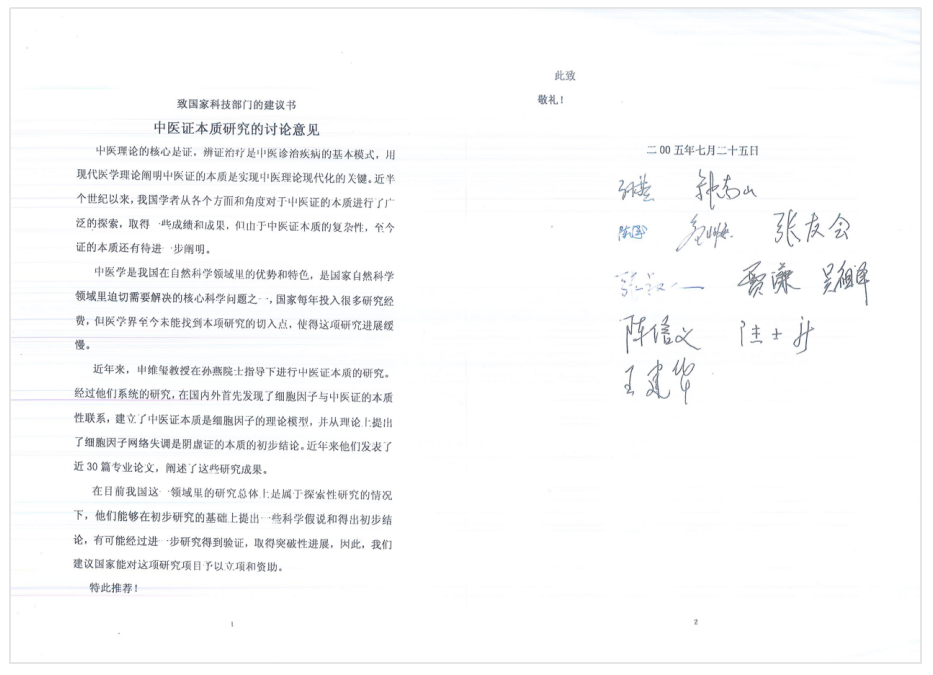 致国家科技部门的建议书
中医证本质研究的讨论意见
中医理论的核心是证，辨证治疗是中医诊治疾病的基本模式，用
现代医学理论阐明中医证的本质是实现中医理论现代化的关键。近半
个世纪以来，我国学者从各个方面和角度对于中医证的本质进行了广
泛的探索，取得一些成绩和成果，但由于中医证本质的复杂性，至今
证的本质还有待进一步阐明。
中医学是我国在自然科学领域里的优势和特色，是国家自然科学
领域里迫切需要解决的核心科学问题之一，国家每年投入很多研究经
费，但医学界至今未能找到本项研究的切入点，使得这项研究进展缓
慢。
近年来，申维玺教授在孙燕院士指导下进行中医证本质的研究。
经过他们系统的研究，在国内外首先发现了细胞因子与中医证的本质
性联系，建立了中医证本质是细胞因子的理论模型，并从理论上提出
了细胞因子网络失调是阴虚证的本质的初步结论。近年来他们发表了
近 30 篇专业论文，阐述了这些研究成果。
在目前我国这一领域里的研究总体上是属于探索性研究的情况
下，他们能够在初步研究的基础上提出一些科学假说和得出初步结
论，有可能经过进一步研究得到验证，取得突破性进展，因此，我们
建议国家能对这项研究项目予以立项和资助。
特此推荐！
1
此致
敬礼！
二 00 五年七月二十五日
孙燕 钟南山
张友会
贾谦 吴祖泽
陈信义 陆士新
王建华
2